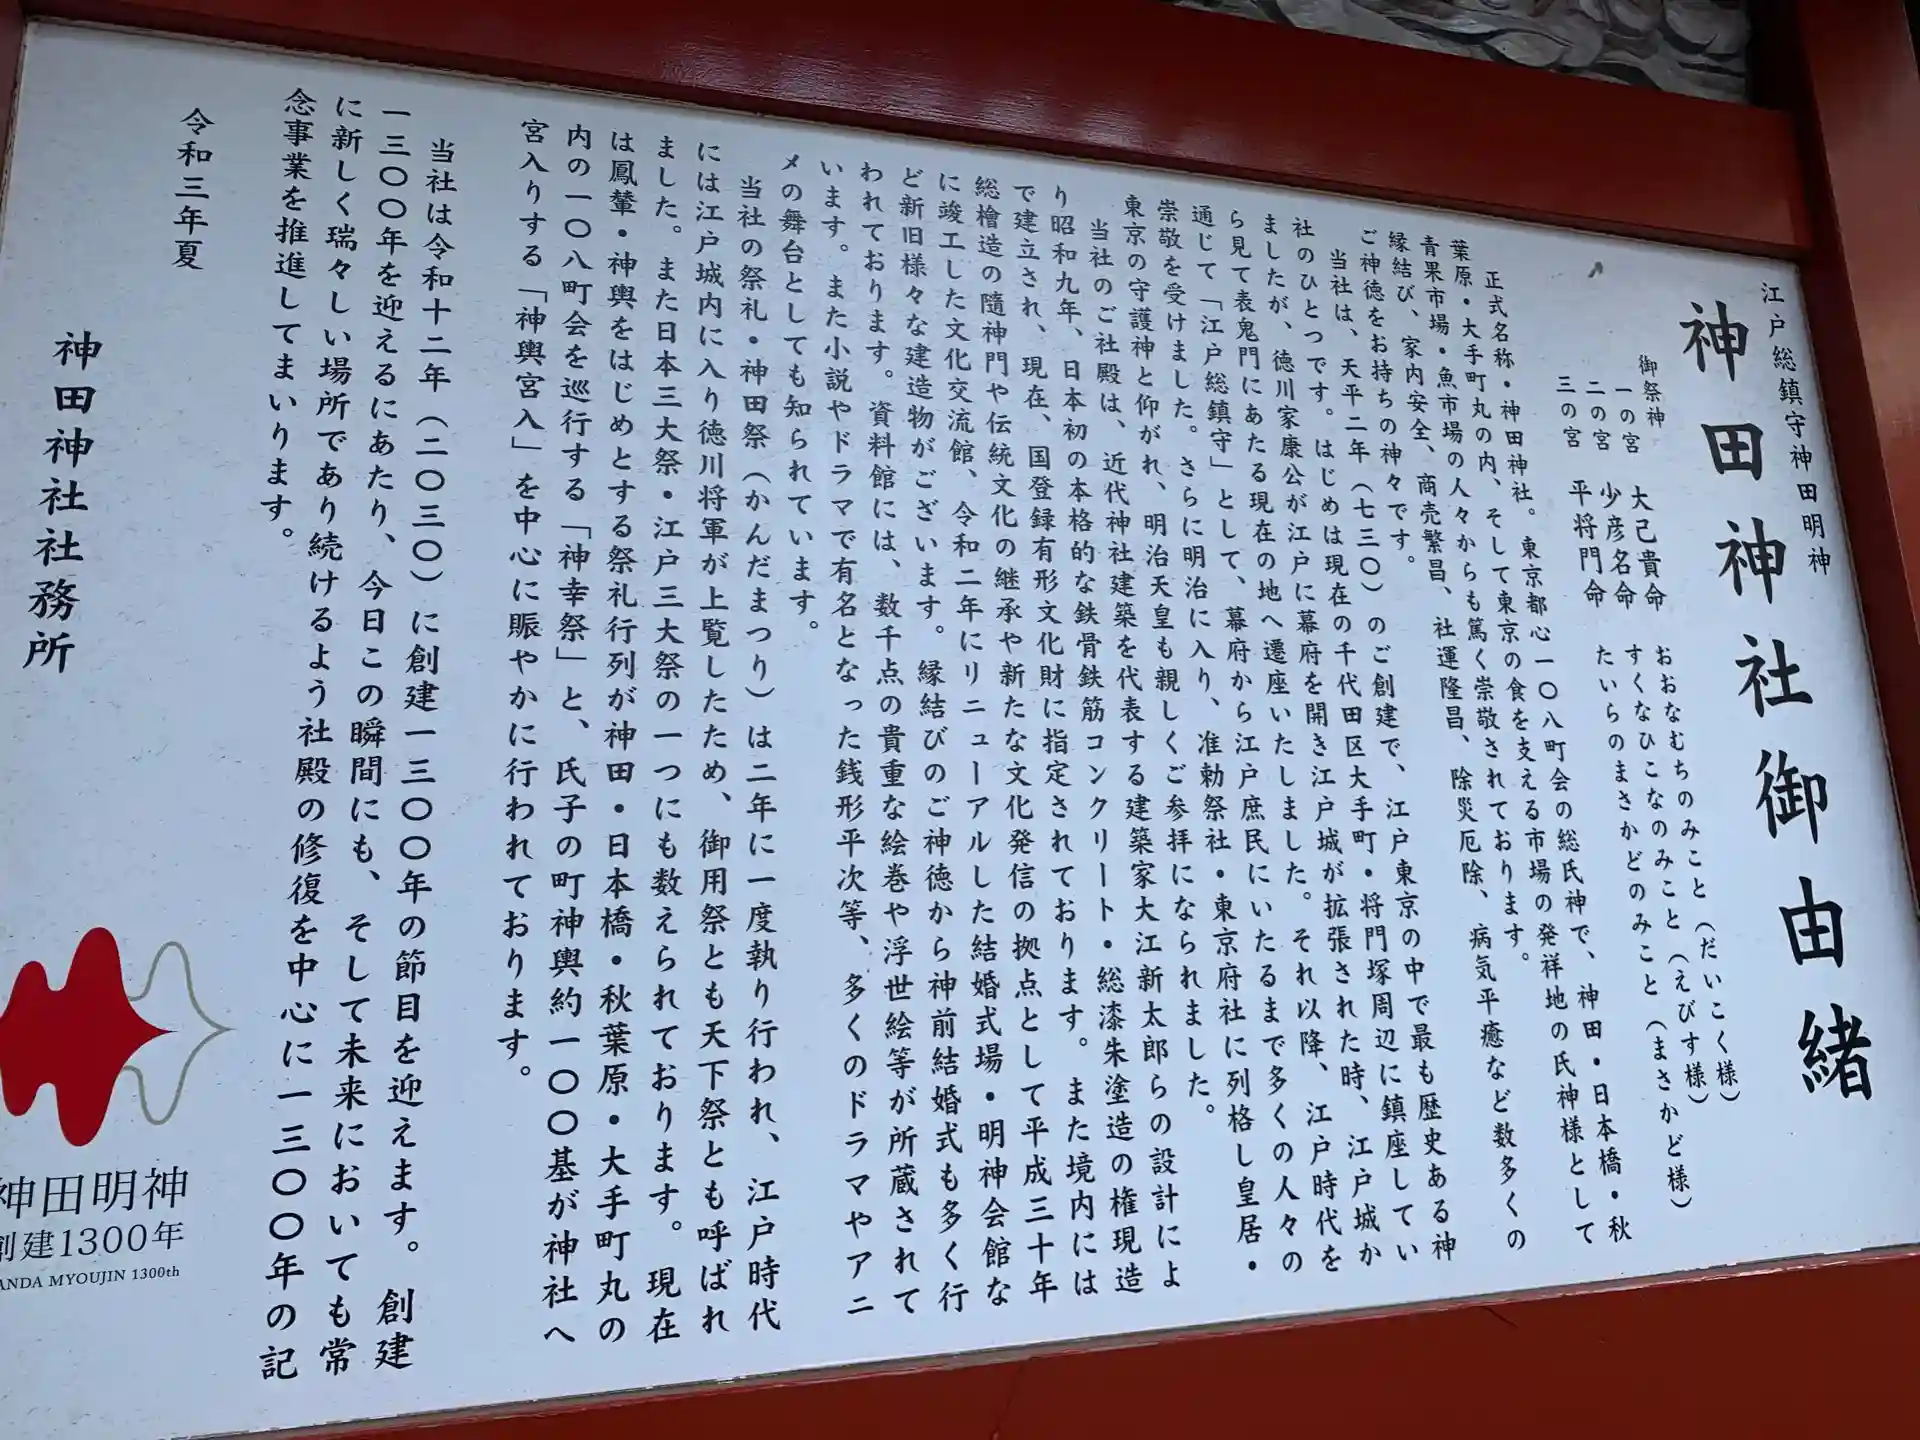 江戸総鎮守神田明神
神田神社御由緒
御祭神
一の宮 大己貴命 おおなむちのみこと（だいこく様）
二の宮 少彦名命 すくなひこなのみこと（えびす様）
三の宮 平将門命 たいらのまさかどのみこと（まさかど様）
正式名称・神田神社。東京都心一〇八町会の総氏神で、神田・日本橋・秋
葉原・大手町丸の内、そして東京の食を支える市場の発祥地の氏神様として
青果市場・魚市場の人々からも篤く崇敬されております。
縁結び、家内安全、商売繁昌、社運隆昌、除災厄除、病気平癒など数多くの
ご神徳をお持ちの神々です。
当社は、天平二年（七三〇）のご創建で、江戸東京の中で最も歴史ある神
社のひとつです。はじめは現在の千代田区大手町・将門塚周辺に鎮座してい
ましたが、徳川家康公が江戸に幕府を開き江戸城が拡張された時、江戸城か
ら見て表鬼門にあたる現在の地へ遷座いたしました。それ以降、江戸時代を
通じて「江戸総鎮守」として、幕府から江戸庶民にいたるまで多くの人々の
崇敬を受けました。さらに明治に入り、准勅祭社・東京府社に列格し皇居・
東京の守護神と仰がれ、明治天皇も親しくご参拝になられました。
当社のご社殿は、近代神社建築を代表する建築家大江新太郎らの設計によ
り昭和九年、日本初の本格的な鉄骨鉄筋コンクリート・総漆朱塗造の権現造
で建立され、現在、国登録有形文化財に指定されております。また境内には
総檜造の隨神門や伝統文化の継承や新たな文化発信の拠点として平成三十年
に竣工した文化交流館、令和二年にリニューアルした結婚式場・明神会館な
ど新旧様々な建造物がございます。縁結びのご神徳から神前結婚式も多く行
われております。資料館には、数千点の貴重な絵巻や浮世絵等が所蔵されて
います。また小説やドラマで有名となった銭形平次等、多くのドラマやアニ
メの舞台としても知られています。
当社の祭礼・神田祭（かんだまつり）は二年に一度執り行われ、江戸時代
には江戸城内に入り徳川将軍が上覧したため、御用祭とも天下祭とも呼ばれ
ました。また日本三大祭・江戸三大祭の一つにも数えられております。現在
は鳳輦・神輿をはじめとする祭礼行列が神田・日本橋・秋葉原・大手町丸の
内の一〇八町会を巡行する「神幸祭」と、氏子の町神輿約一〇〇基が神社へ
宮入りする「神輿宮入」を中心に賑やかに行われております。
当社は令和十二年（二〇三〇）に創建一三〇〇年の節目を迎えます。創建
一三〇〇年を迎えるにあたり、今日この瞬間にも、そして未来においても常
に新しく瑞々しい場所であり続けるよう社殿の修復を中心に一三〇〇年の記
念事業を推進してまいります。
令和三年夏
神田神社社務所
神田明神
創建1300年
ANDA MYOUJIN 1300th